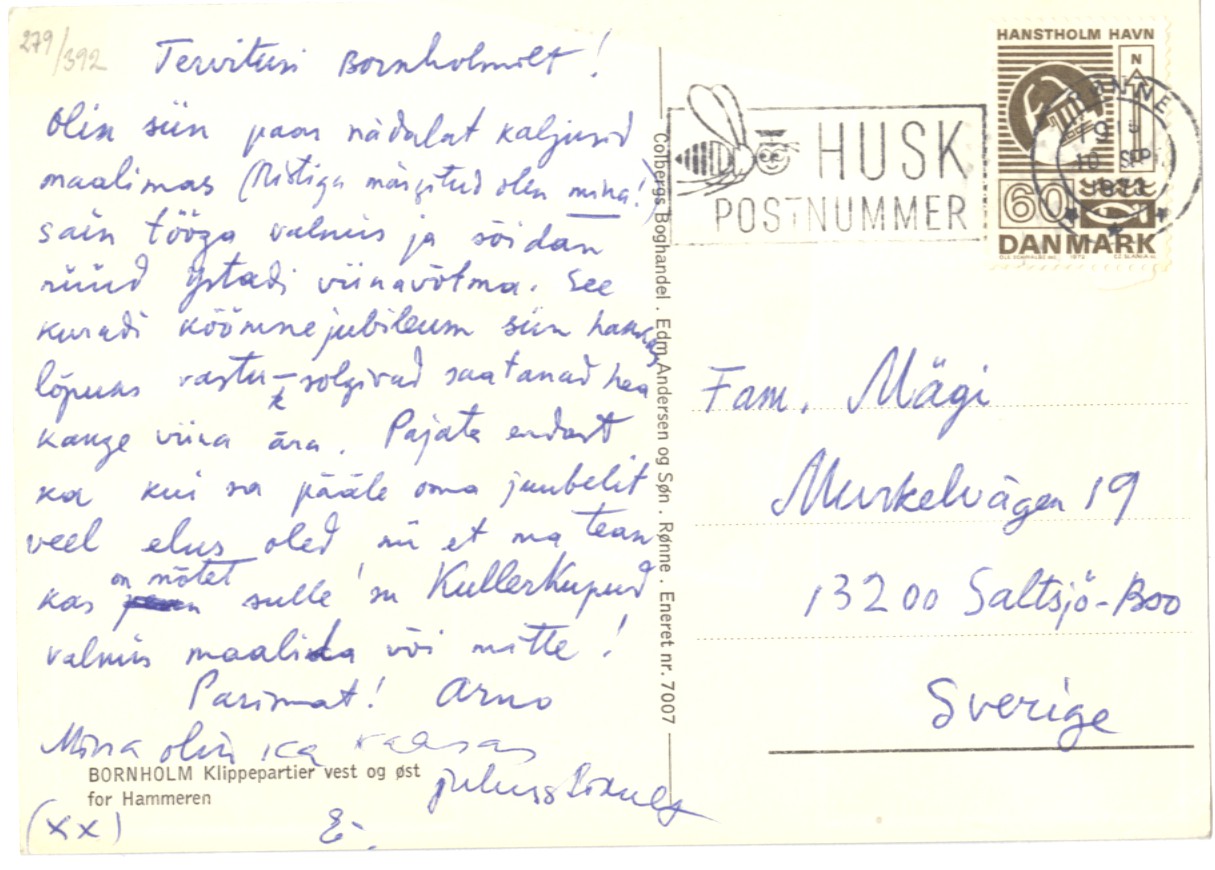 279/392
Tervitusi Bornholmilt!
Olin siin paar nädalat kaljusid
maalimas (Ristiga märgitud olen mina!)
sain tööga valmis ja sõidan
nüüd Ystadi viinavõtma. See
kuradi köömnejubileum siin
lõpuks vastu – solgivad saatanad hea
kange viina ära. Pajata endast
ka kui sa pääle oma juubelit
veel elus oled nii et ma tean
kas on mõtet sulle su Kullerkupud
valmis maalida või mitte!
Parimat! Arno
Mina olin ka kaasas
(xx)
BORNHOLM Klippepartier vest og øst
for Hammeren
Colbergs Boghandel . Edm. Andersen og Søn . Rønne . Eneret nr. 7007
HUSK
POSTNUMMER
HANSTHOLM HAVN
N
60
DANMARK
RØNNE
10 SEP
Fam. Mägi
Murkelvägen 19
13200 Saltsjö-Boo
Sverige